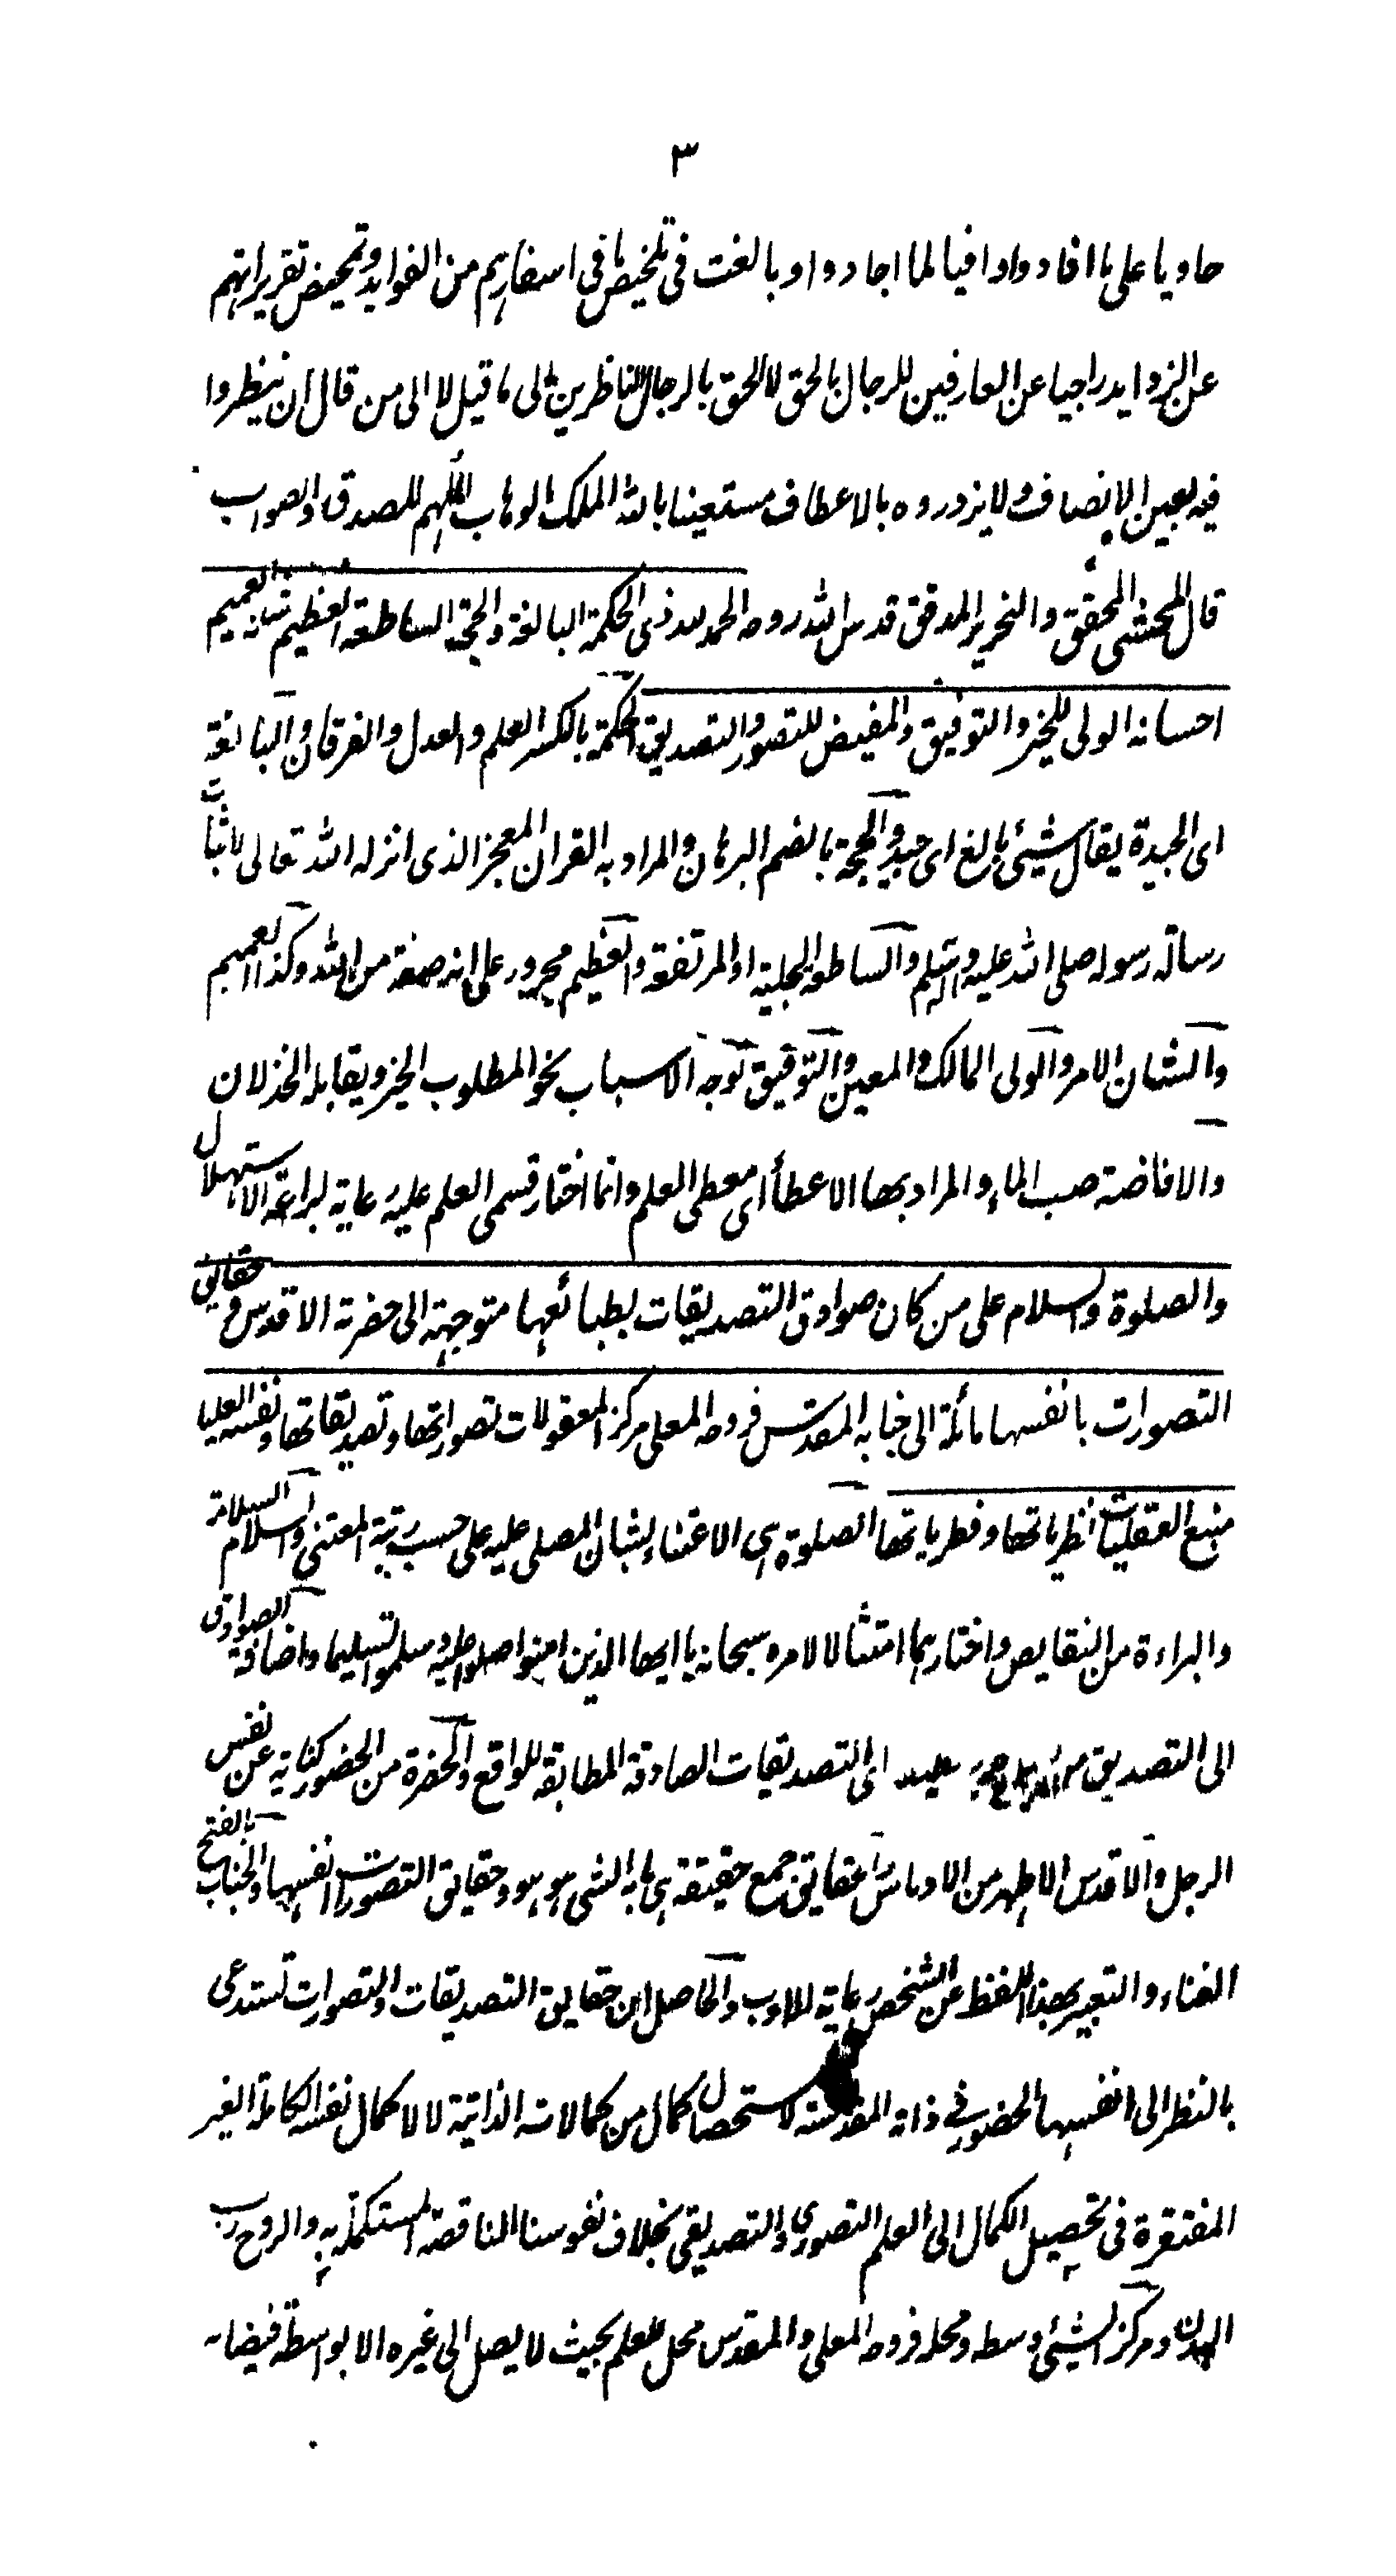 ٣
حاويا على ما افادوا وافيا لما اجادوا وبالغت فى تلخيص ما فى اسفارهم من الفوايد وتمحيض تقريراتهم
عن الزوايد راجيا عن العارفين للرجال بالحق لا الحق بالرجال الناظرين الى ما قيل لا الى من قال ان ينظروا
فيه بعين الانصاف ولا يزدروه بالاعطاف مستعينا بالله الملك الوهاب الملهم للصدق والصواب
قال المحشى المحقق والنحرير المدقق قدس الله روحه الحمد لله ذى الحكمة البالغة والحجة الساطعة العظيم شانه العميم
احسانه الولى للخير والتوفيق والمفيض للتصور والتصديق الحكمة بالكسر العلم والعدل والفرقان والبالغة
اى الجيدة يقال شيئ بالغ اى جيد والحجة بالضم البرهان والمراد به القران المعجز الذى انزله الله تعالى لاثبات
رسالة رسوله صلى الله عليه واله وسلم والساطعة الجلية او المرتفعة والعظيم مجرور على انه صفة من الله وكذا العميم
والشان الامر والولى المالك والمعين والتوفيق توجه الاسباب نحو المطلوب الخير ويقابله الخذلان
والافاضة صب الماء والمراد بها الاعطأ اى معطى العلم وانما اختار قسمى العلم عليه رعاية لبراعة الاستهلال
والصلوة والسلام على من كان صوادق التصديقات بطبائعها متوجهة الى حضرته الاقدس وحقايق
التصورات بانفسها مائلة الى جنابه المقدس فروحه المعلى مركز المعقولات تصوراتها وتصديقاتها ونفسه العليا
منبع العقليات نظرياتها وفطرياتها الصلوة هى الاعتناء بشان المصلى عليه على حسب رتبة المعتنى والسلام السلامة
والبراءة من النقايص واختارهما امتثالا لامره سبحانه يا ايها الذين امنوا صلوا عليه وسلموا تسليما واضافة الصوادق
الى التصديق من اى التصديقات الصادقة المطابقة للواقع والحضرة من الحضور كناية عن نفس
الرجل والاقدس الاطهر من الادناس والحقايق جمع حقيقة هى ما به الشى هو هو وحقايق التصورات انفسها والجناب بالفتح
الفناء والتعبير بهذا اللفظ عن الشخص رعاية للادب والحاصل ان حقايق التصديقات والتصورات تستدعى
بالنظر الى انفسها الحضور فى ذاته المقدسة لاستحصال كمال من كمالاته الذاتية لا لاكمال نفسه الكاملة الغير
المفتقرة فى تحصيل الكمال الى العلم التصورى والتصديقى بخلاف نفوسنا الناقصة المستكملة به والروح رب
البدن ومركز الشيئ وسطه ومحله فروحه المعلى والمقدس محل للعلم بحيث لا يصل الى غيره الا بواسطة فيضانه